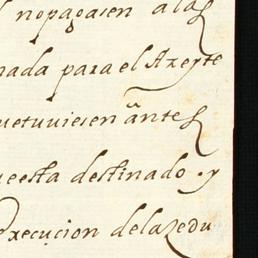 nopagasen alas
nada para el Azeyte
uetuviesen ãntes
eesta destinado y
Execuçion delazedu